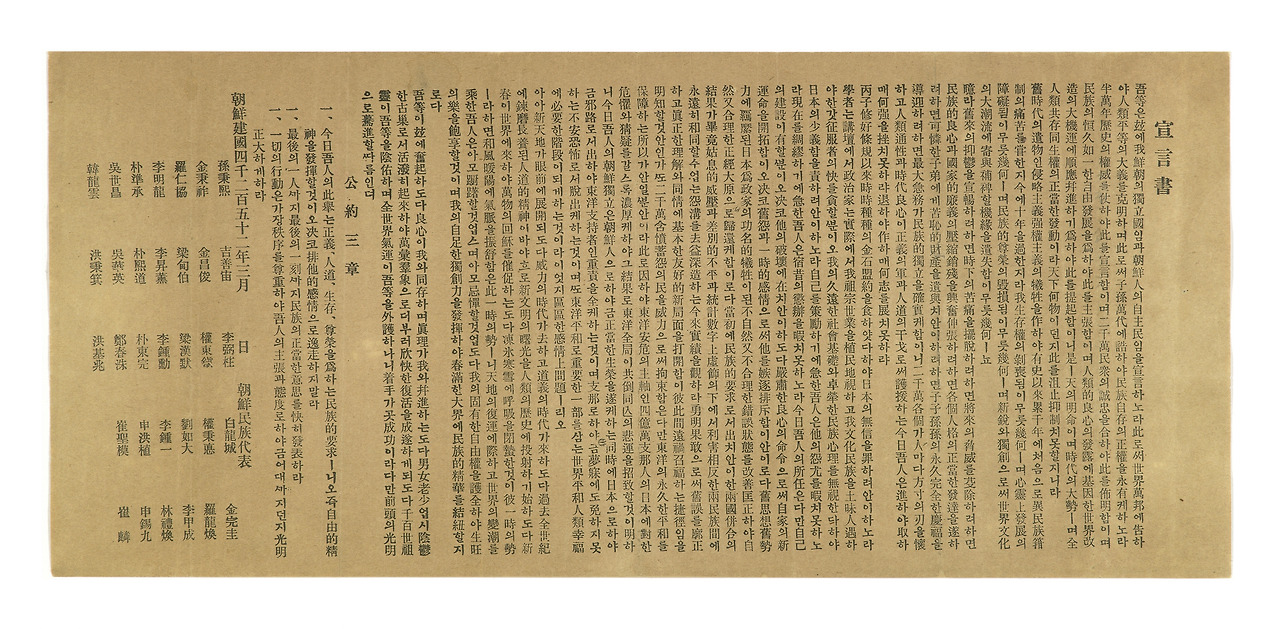 宣言書
吾等은玆에我鮮朝의獨立國임과朝鮮人의自主民임을宣言하노라此로써世界萬邦에告하
야人類平等의大義를克明하며此로써子孫萬代에誥하야民族自存의正權을永有케하노라
半萬年歷史의權威를仗하야此를宣言함이며二千萬民衆의誠忠을合하야此를佈明함이며
民族의恒久如一한自由發展을爲하야此를主張함이며人類的良心의發露에基因한世界改
造의大機運에順應幷進하기爲하야此를提起함이니是ㅣ天의明命이며時代의大勢ㅣ며全
人類共存同生權의正當한發動이라天下何物이던지此를沮止抑制치못할지니라
舊時代의遺物인侵略主義强權主義의犧牲을作하야有史以來累千年에처음으로異民族箝
制의痛苦를嘗한지今에十年을過한지라我生存權의剝喪됨이무릇幾何ㅣ며心靈上發展의
障礙됨이무릇幾何ㅣ며民族的尊榮의毁損됨이무릇幾何ㅣ며新銳와獨創으로써世界文化
의大潮流에寄與補裨할機緣을遺失함이무릇幾何ㅣ뇨
噫라舊來의抑鬱을宣暢하려하면時下의苦痛을擺脫하려하면將來의脅威를芟除하려하면
民族的良心과國家的廉義의壓縮銷殘을興奮伸張하려하면各個人格의正當한發達을遂하
려하면可憐한子弟에게苦恥的財產을遺與치안이하려하면子子孫孫의永久完全한慶福을
導迎하려하면最大急務가民族的獨立을確實케함이니二千萬各個가人마다方寸의刃을懷
하고人類通性과時代良心이正義의軍과人道의干戈로써護援하는今日吾人은進하야取하
매何强을挫치못하랴退하야作하매何志를展치못하랴
丙子修好條規以來時時種種의金石盟約을食하얏다하야日本의無信을罪하려안이하노라
學者는講壇에서政治家는實際에서我祖宗世業을植民地視하고我文化民族을土昧人遇하
야한갓征服者의快를貪할뿐이오我의久遠한社會基礎와卓犖한民族心理를無視한다하야
日本의少義함을責하려안이하노라自己를策勵하기에急한吾人은他의怨尤를暇치못하노
라現在를綢繆하기에急한吾人은宿昔의懲辦을暇치못하노라今日吾人의所任은다만自己
의建設이有할뿐이오決코他의破壞에在치안이하도다嚴肅한良心의命令으로써自家의新
運命을開拓함이오決코舊怨과一時的感情으로써他를嫉逐排斥함이안이로다舊思想舊勢
力에羈縻된日本爲政家의功名的犧牲이된不自然又不合理한錯誤狀態를改善匡正하야自
然又合理한正經大原으로歸還케함이로다當初에民族的要求로서出치안이한兩國倂合의
結果가畢竟姑息的威壓과差別的不平과統計數字上虛飾의下에서利害相反한兩民族間에
永遠히和同할수업는怨溝를去益深造하는今來實績을觀하라勇明果敢으로써舊誤를廓正
하고眞正한理解와同情에基本한友好的新局面을打開함이彼此間遠禍召福하는捷徑임을
明知할것안인가또二千萬含憤蓄怨의民을威力으로써拘束함은다만東洋의永久한平和를
保障하는所以가안일뿐안이라此로因하야東洋安危의主軸인四億萬支那人의日本에對한
危懼와猜疑를갈스록濃厚케하야그結果로東洋全局이共倒同亡의悲運을招致할것이明하
니今日吾人의朝鮮獨立은朝鮮人으로하야금正當한生榮을遂케하는同時에日本으로하야
금邪路로서出하야東洋支持者인重責을全케하는것이며支那로하야금夢寐에도免하지못
하는不安恐怖로서脫出케하는것이며또東洋平和로重要한一部를삼는世界平和人類幸福
에必要한階段이되게하는것이라이엇지區區한感情上問題ㅣ리오
아아新天地가眼前에展開되도다威力의時代가去하고道義의時代가來하도다過去全世紀
에鍊磨長養된人道的精神이바야흐로新文明의曙光을人類의歷史에投射하기始하도다新
春이世界에來하야萬物의回穌를催促하는도다凍氷寒雪에呼吸을閉蟄한것이彼一時의勢
ㅣ라하면和風暖陽에氣脈을振舒함은此一時의勢ㅣ니天地의復運에際하고世界의變潮를
乘한吾人은아모躊躇할것업스며아모忌憚할것업도다我의固有한自由權을護全하야生旺
의樂을飽享할것이며我의自足한獨創力을發揮하야春滿한大界에民族的精華를結紐할지
로다
吾等이玆에奮起하도다良心이我와同存하며眞理가我와幷進하는도다男女老少업시陰鬱
한古巢로서活潑히起來하야萬彙羣象으로더부러欣快한復活을成遂하게되도다千百世祖
靈이吾等을陰佑하며全世界氣運이吾等을外護하나니着手가곳成功이라다만前頭의光明
으로驀進할따름인뎌
公約三章
一、今日吾人의此擧는正義、人道、生存、尊榮을爲하는民族的要求ㅣ니오즉自由的精
神을發揮할것이오決코排他的感情으로逸走하지말라
一、最後의一人까지最後의一刻까지民族의正當한意思를快히發表하라
一、一切의行動은가장秩序를尊重하야吾人의主張과態度로하야금어대까지던지光明
正大하게하라
朝鮮建國四千二百五十二年三月 日 朝鮮民族代表
孫秉熙 吉善宙 李弼柱 白龍城 金完圭
金秉祚 金昌俊 權東鎭 權秉悳 羅龍煥
羅仁協 梁甸伯 梁漢默 劉如大 李甲成
李明龍 李昇薰 李鍾勳 李鍾一 林禮煥
朴準承 朴熙道 朴東完 申洪植 申錫九
吳世昌 吳華英 鄭春洙 崔聖模 崔麟
韓龍雲 洪秉箕 洪基兆